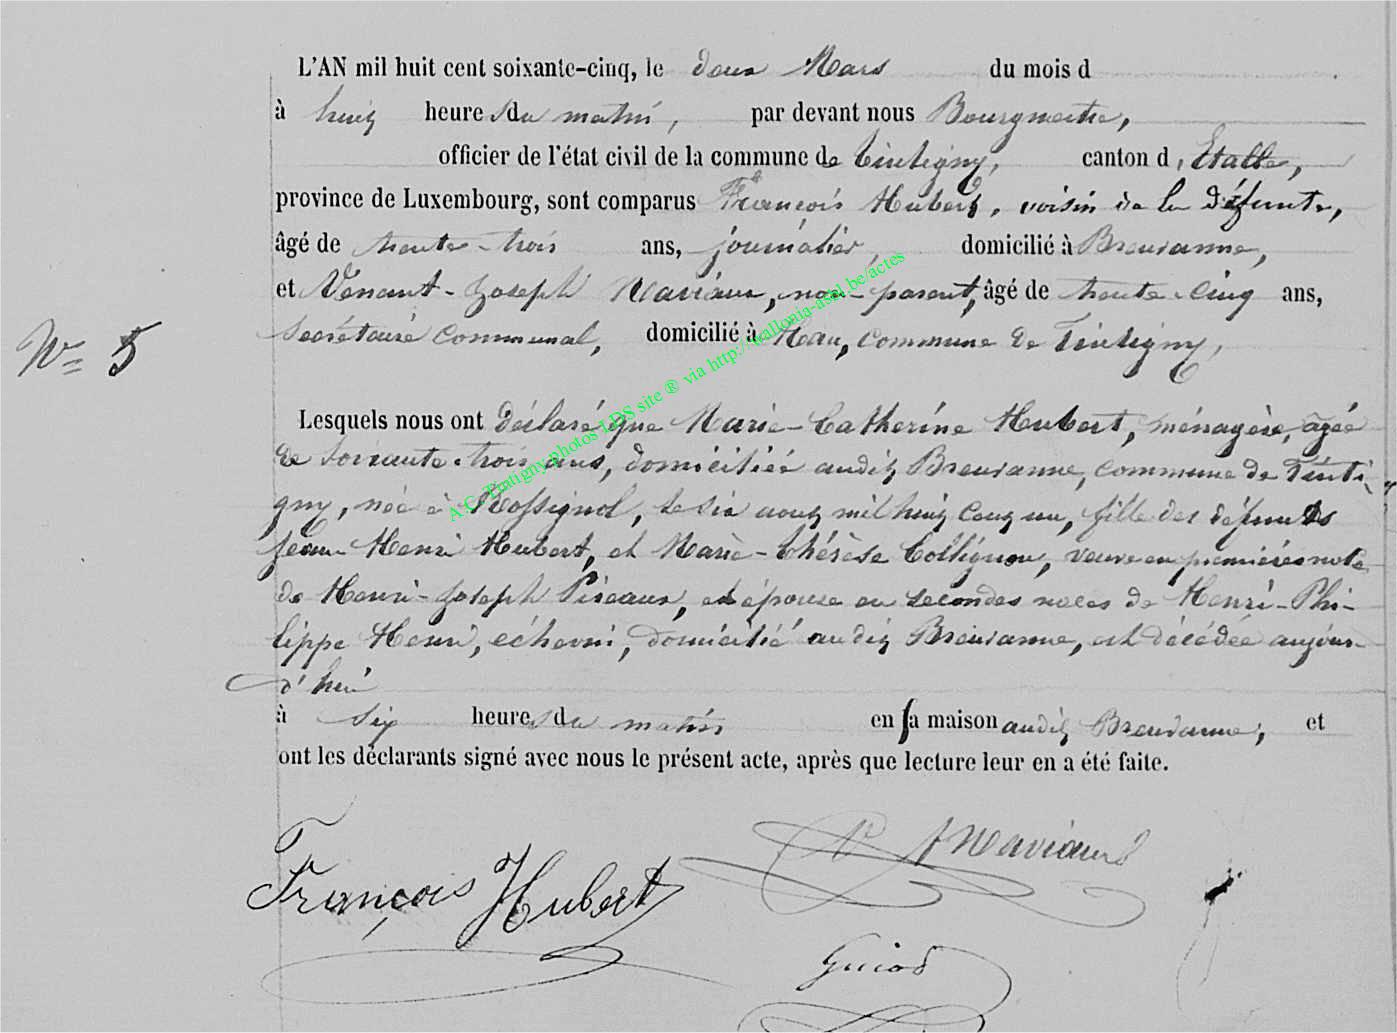 L'AN mil huit cent soixante-cinq, le deux Mars du mois d
à huit heures du matin, par devant nous Bourgmestre,
officier de l'état civil de la commune de Tintigny, canton d'Etalle,
province de Luxembourg, sont comparus François Hubert, voisin de la défunte,
âgé de trente-trois ans, journalier, domicilié à Breuvanne,
et Venant-Joseph Maviaux, non-parent, âgé de trente-cinq ans,
Nº 5
secrétaire communal, domicilié à Han, commune de Tintigny,
Lesquels nous ont déclaré que Marie-Catherine Hubert, ménagère, agée
de soixante-trois ans, domiciliée audit Breuvanne, commune de Tinti-
gny, née à Rossignol, le six aout mil huit cent un, fille des défunts
Jean Henri Hubert, et Marie-Thérèse Collignon, veuve en premières noces
de Henri-Joseph Pireaux, et épouse en secondes noces de Henri-Phi-
lippe Henri, échevin, domicilié audit Breuvanne, est décédée aujour-
d'hui
à six heures du matin en sa maison audit Breuvanne, et
ont les déclarants signé avec nous le présent acte, après que lecture leur en a été faite.
V J Maviaux
François Hubert
Guiod
A.C. Tintigny photos LDS site ® via http://wallonia-asbl.be/actes